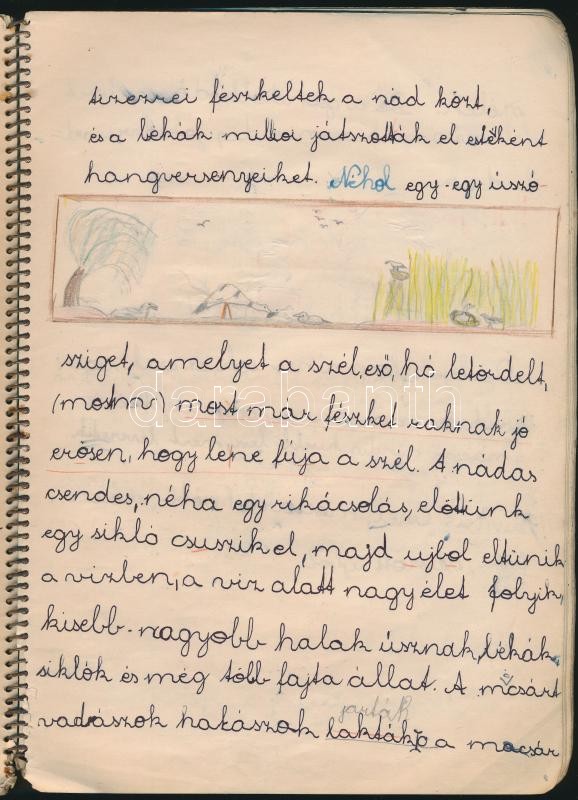 tizezrei fészkeltek a nád közt,
és a békák milliói játszották el esténként
hangversenyeiket. Néhol egy-egy úszó
sziget, amelyet a szél, eső, hó letördelt,
most már fészket raknak jó
erősen, hogy lene fúja a szél. A nádas
csendes, néha egy rikácsolás, előttünk
egy sikló csuszik el, majd ujbol eltünik
a vizben, a viz alatt nagy élet folyik,
kisebb-nagyobb halak úsznak, békák
siklók és még több fajta állat. A mcsárt
jarták
vadászok halászok lakták a mocsár
darabanth